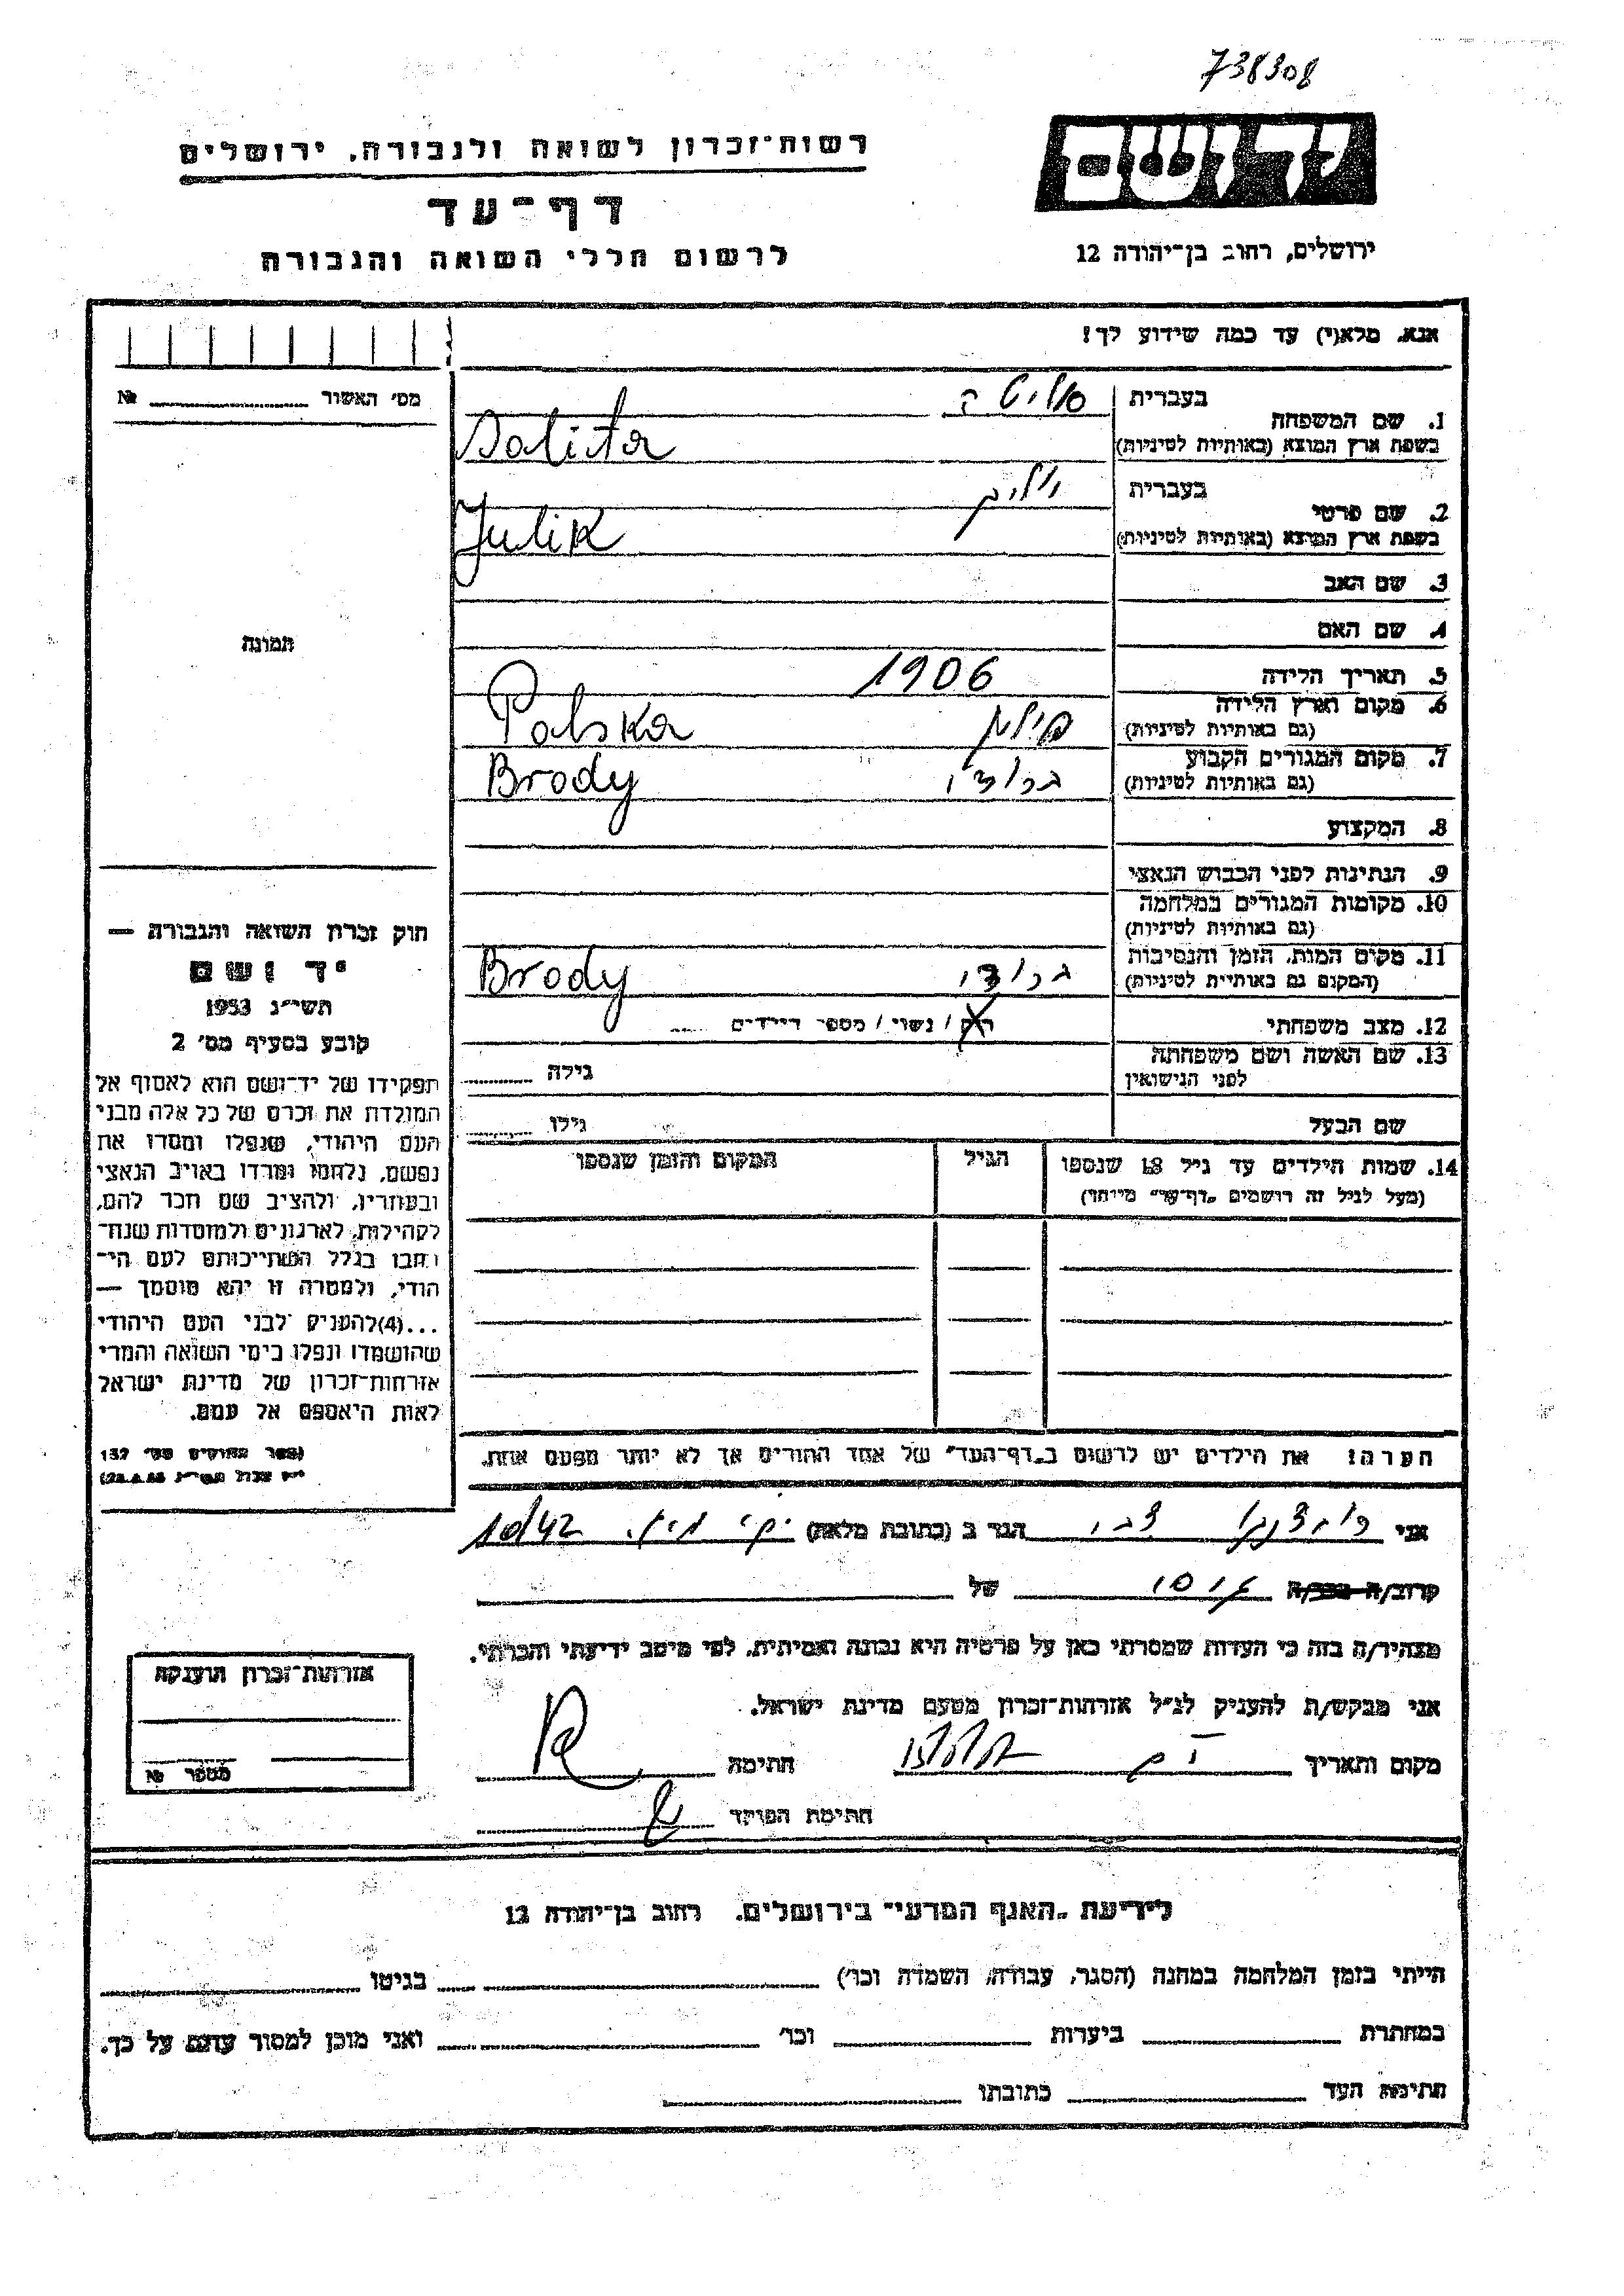 738308
רשות־זכרון לשואה ולגבורה, ירושלים
יד ושם
דף־עד
לרשום חללי השואה והגבורה
ירושלים, רחוב בן־יהודה 12
אנא, מלא(י) עד כמה שידוע לך!
מס׳ האשור № 
1. שם המשפחה בעברית
בשפת ארץ המוצא (באותיות לטיניות) Salita
2. שם פרטי בעברית
בשפת ארץ המוצא (באותיות לטיניות) Julik
3. שם האב
4. שם האם
תמונה
5. תאריך הלידה 1906
6. מקום וארץ הלידה פולין Polska
(גם באותיות לטיניות)
7. מקום המגורים הקבוע ברודי Brody
(גם באותיות לטיניות)
8. המקצוע
9. הנתינות לפני הכבוש הנאצי
10. מקומות המגורים במלחמה
(גם באותיות לטיניות)
11. מקום המות, הזמן והנסיבות ברודי Brody
(המקום גם באותיות לטיניות)
12. מצב משפחתי רווק / נשוי / מספר הילדים
13. שם האשה ושם משפחתה גילה
לפני הנישואין
שם הבעל גילו
14. שמות הילדים עד גיל 18 שנספו הגיל המקום והזמן שנספו
(מעל לגיל זה רושמים „דף־עד״ מיוחד)
חוק זכרון השואה והגבורה —
יד ושם
תשי״ג 1953
קובע בסעיף מס׳ 2
תפקידו של יד־ושם הוא לאסוף אל
המולדת את זכרם של כל אלה מבני
העם היהודי, שנפלו ומסרו את
נפשם, נלחמו ומרדו באויב הנאצי
ובעוזריו, ולהציב שם וזכר להם,
לקהילות, לארגונים ולמוסדות שנח־
רבו בגלל השתייכותם לעם הי־
הודי, ולמטרה זו יהא מוסמך —
...(4) להעניק לבני העם היהודי
שהושמדו ונפלו בימי השואה והמרי
אזרחות־זכרון של מדינת ישראל
לאות היאספם אל עמם.
(ספר החוקים מס׳ 132
הערה! את הילדים יש לרשום ב„דף־העד״ של אחד ההורים אך לא יותר מפעם אחת.
אני הגר ב (כתובת מלאה) 10/42
קרוב/ה מכר/ה של
מצהיר/ה בזה כי העדות שמסרתי כאן על פרטיה היא נכונה ואמיתית, לפי מיטב ידיעתי והכרתי.
אני מבקש/ת להעניק לנ״ל אזרחות־זכרון מטעם מדינת ישראל.
מקום ותאריך חתימה
חתימת הפוקד
אזרחות־זכרון הוענקה
מספר №
לידיעת „האגף המדעי״ בירושלים, רחוב בן־יהודה 12
הייתי בזמן המלחמה במחנה (הסגר, עבודה, השמדה וכו׳) בגיטו
במחתרת ביערות וכו׳ ואני מוכן למסור עדותם על כך.
חתימת העד כתובתו